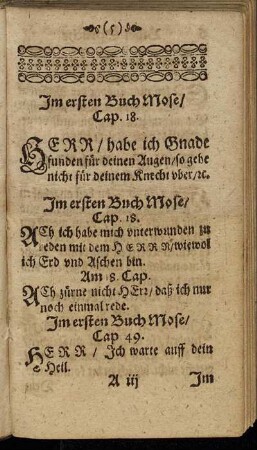 (5)
Im ersten Buch Mose/
Cap. 18.
HERR/habe ich Gnade
funden für deinen Augen/so gehe
nicht für deinem Knecht vber/ꝛc.
Im ersten Buch Mose/
Cap. 18.
ACh ich habe mich vnterwunden zu
reden mit dem HERRN/wiewol
ich Erd vnd Aschen bin.
Am 18. Cap.
ACh zürne nicht HErr/daß ich nur
noch einmal rede.
Im ersten Buch Mose/
Cap 49.
HERR/Ich warte auff dein
Heil.
A iij Im